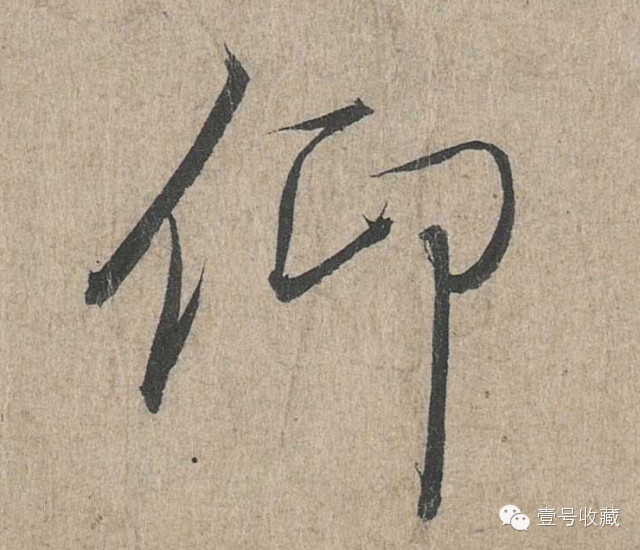 仰
壹号收藏